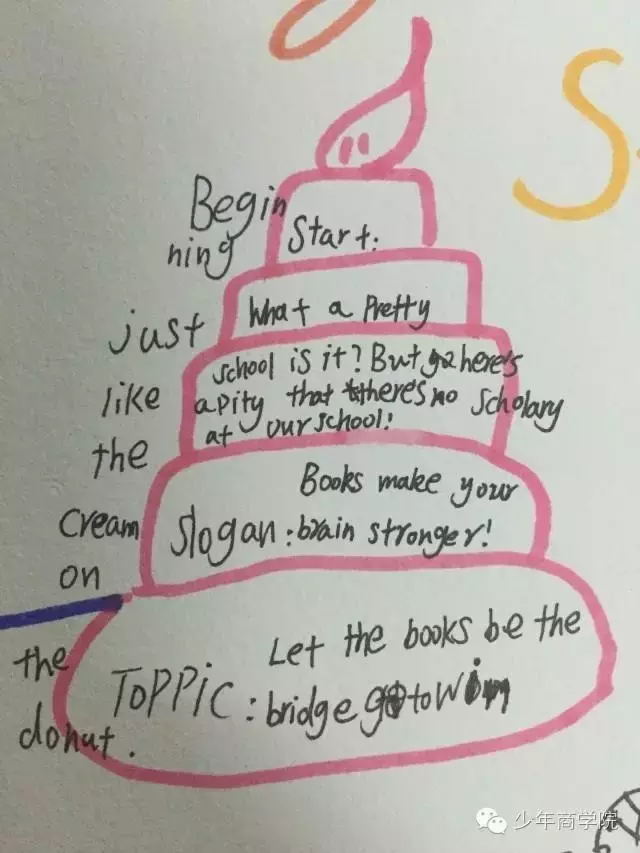 Begin
ning
just
like
the
cream
on
the
donut.
Start:
What a Pretty
school is it? But here's
a pity that there's no Scholary
at our school!
Books make your
Slogan: brain stronger!
Let the books be the
ToPPic: bridge to win
S
少年商学院